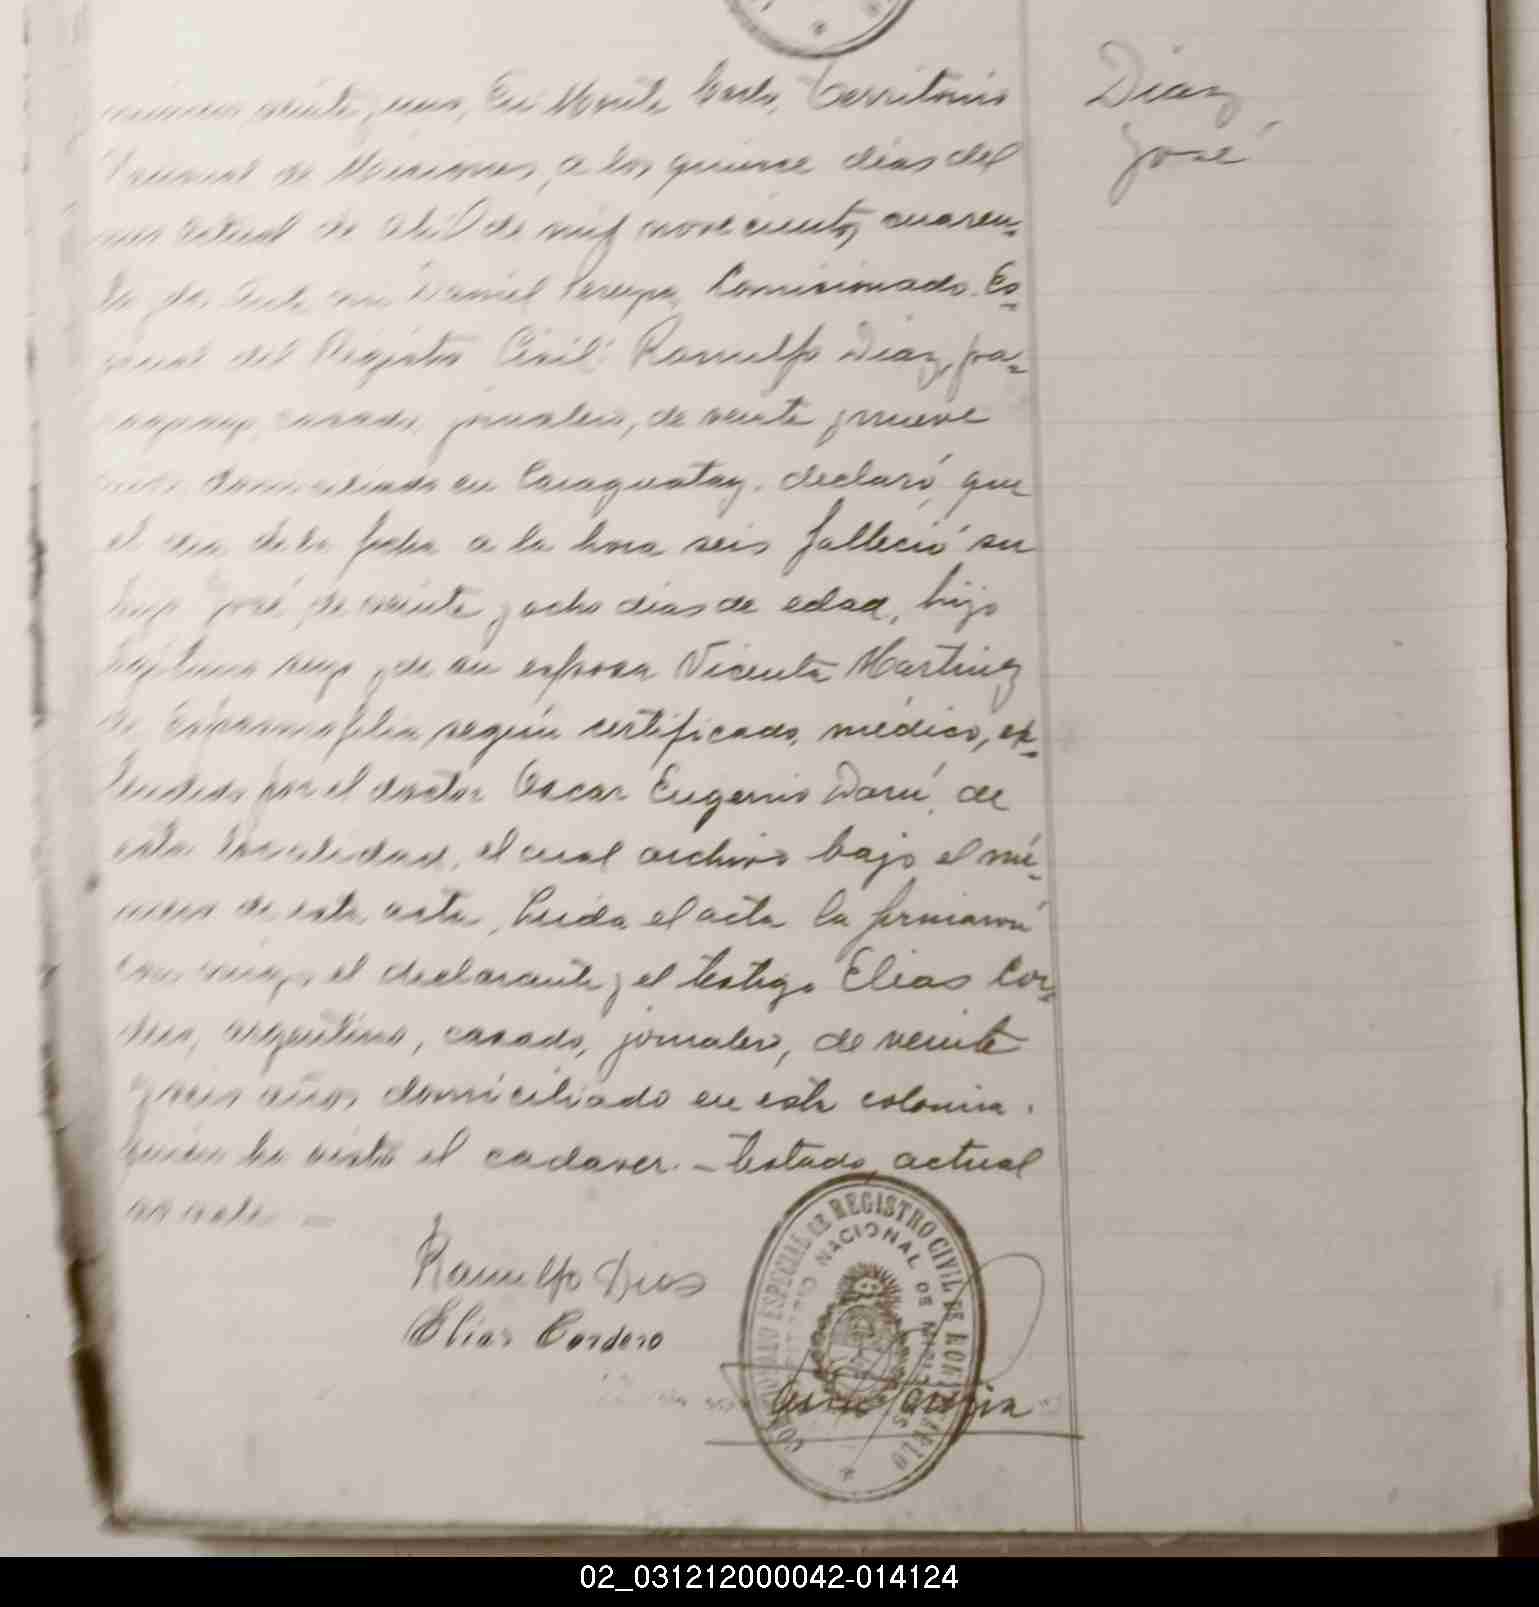 número veinte y uno, En Monte Carlo, Territorio
Nacional de Misiones, a los quince días del
mes actual de abril de mil novecientos cuaren-
ta y dos, ante mi Daniel Comisionado Es-
pecial del Registro Civil: Ramulfo Diaz, pa-
raguayo, casado, jornalero, de veinte y nueve
años, domiciliado en Caraguatay, declaró, que
el dia de la fecha a la hora seis falleció su
hijo José, de veinte y ocho dias de edad, hijo
legítimo suyo y de su esposa Vicenta Martinez
de Espasmofilia, según certificado médico, ex-
tendido por el doctor Oscar Eugenio Darú, de
esta localidad, el cual archivo bajo el nú-
mero de esta acta, Leida el acta la firmaron
conmigo, el declarante y el testigo Elias Cor-
dero, argentino, casado, jornalero, de veinte
y seis años domiciliado en esta colonia,
quien ha visto el cadaver. - Testado, actual
no vale. -
Diaz
José
Ramulfo Dias
Elias Cordero
ESPECIAL DE REGISTRO CIVIL DE MONTE CARLO
TERRITORIO NACIONAL DE MISIONES
02_031212000042-014124